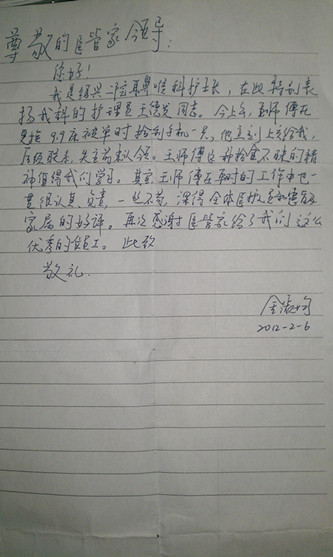 尊敬的医管家领导:
您好!
我是绍兴二院耳鼻喉科护士长,在此特别表
扬我科的护理员王德兴同志。今上午,王师傅在
更换99床被单时捡到手机一只,他立刻上交给我,
后经联系,失主前来认领。王师傅这种拾金不昧的精
神值得我们学习。其实王师傅在平时的工作中也一
贯很认真负责,一丝不苟,深得全体医护人员和患者及
家属的好评。再次感谢医管家给了我们这么
优秀的员工。此致
敬礼
金淑
2012-2-6